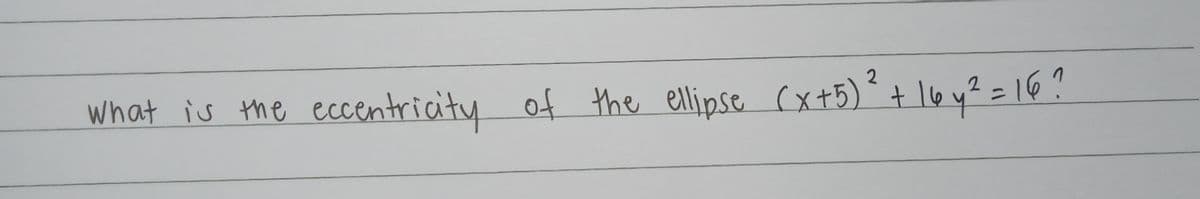 What is the eccentricity of the ellipse (x+5)² + 16y² = 16?